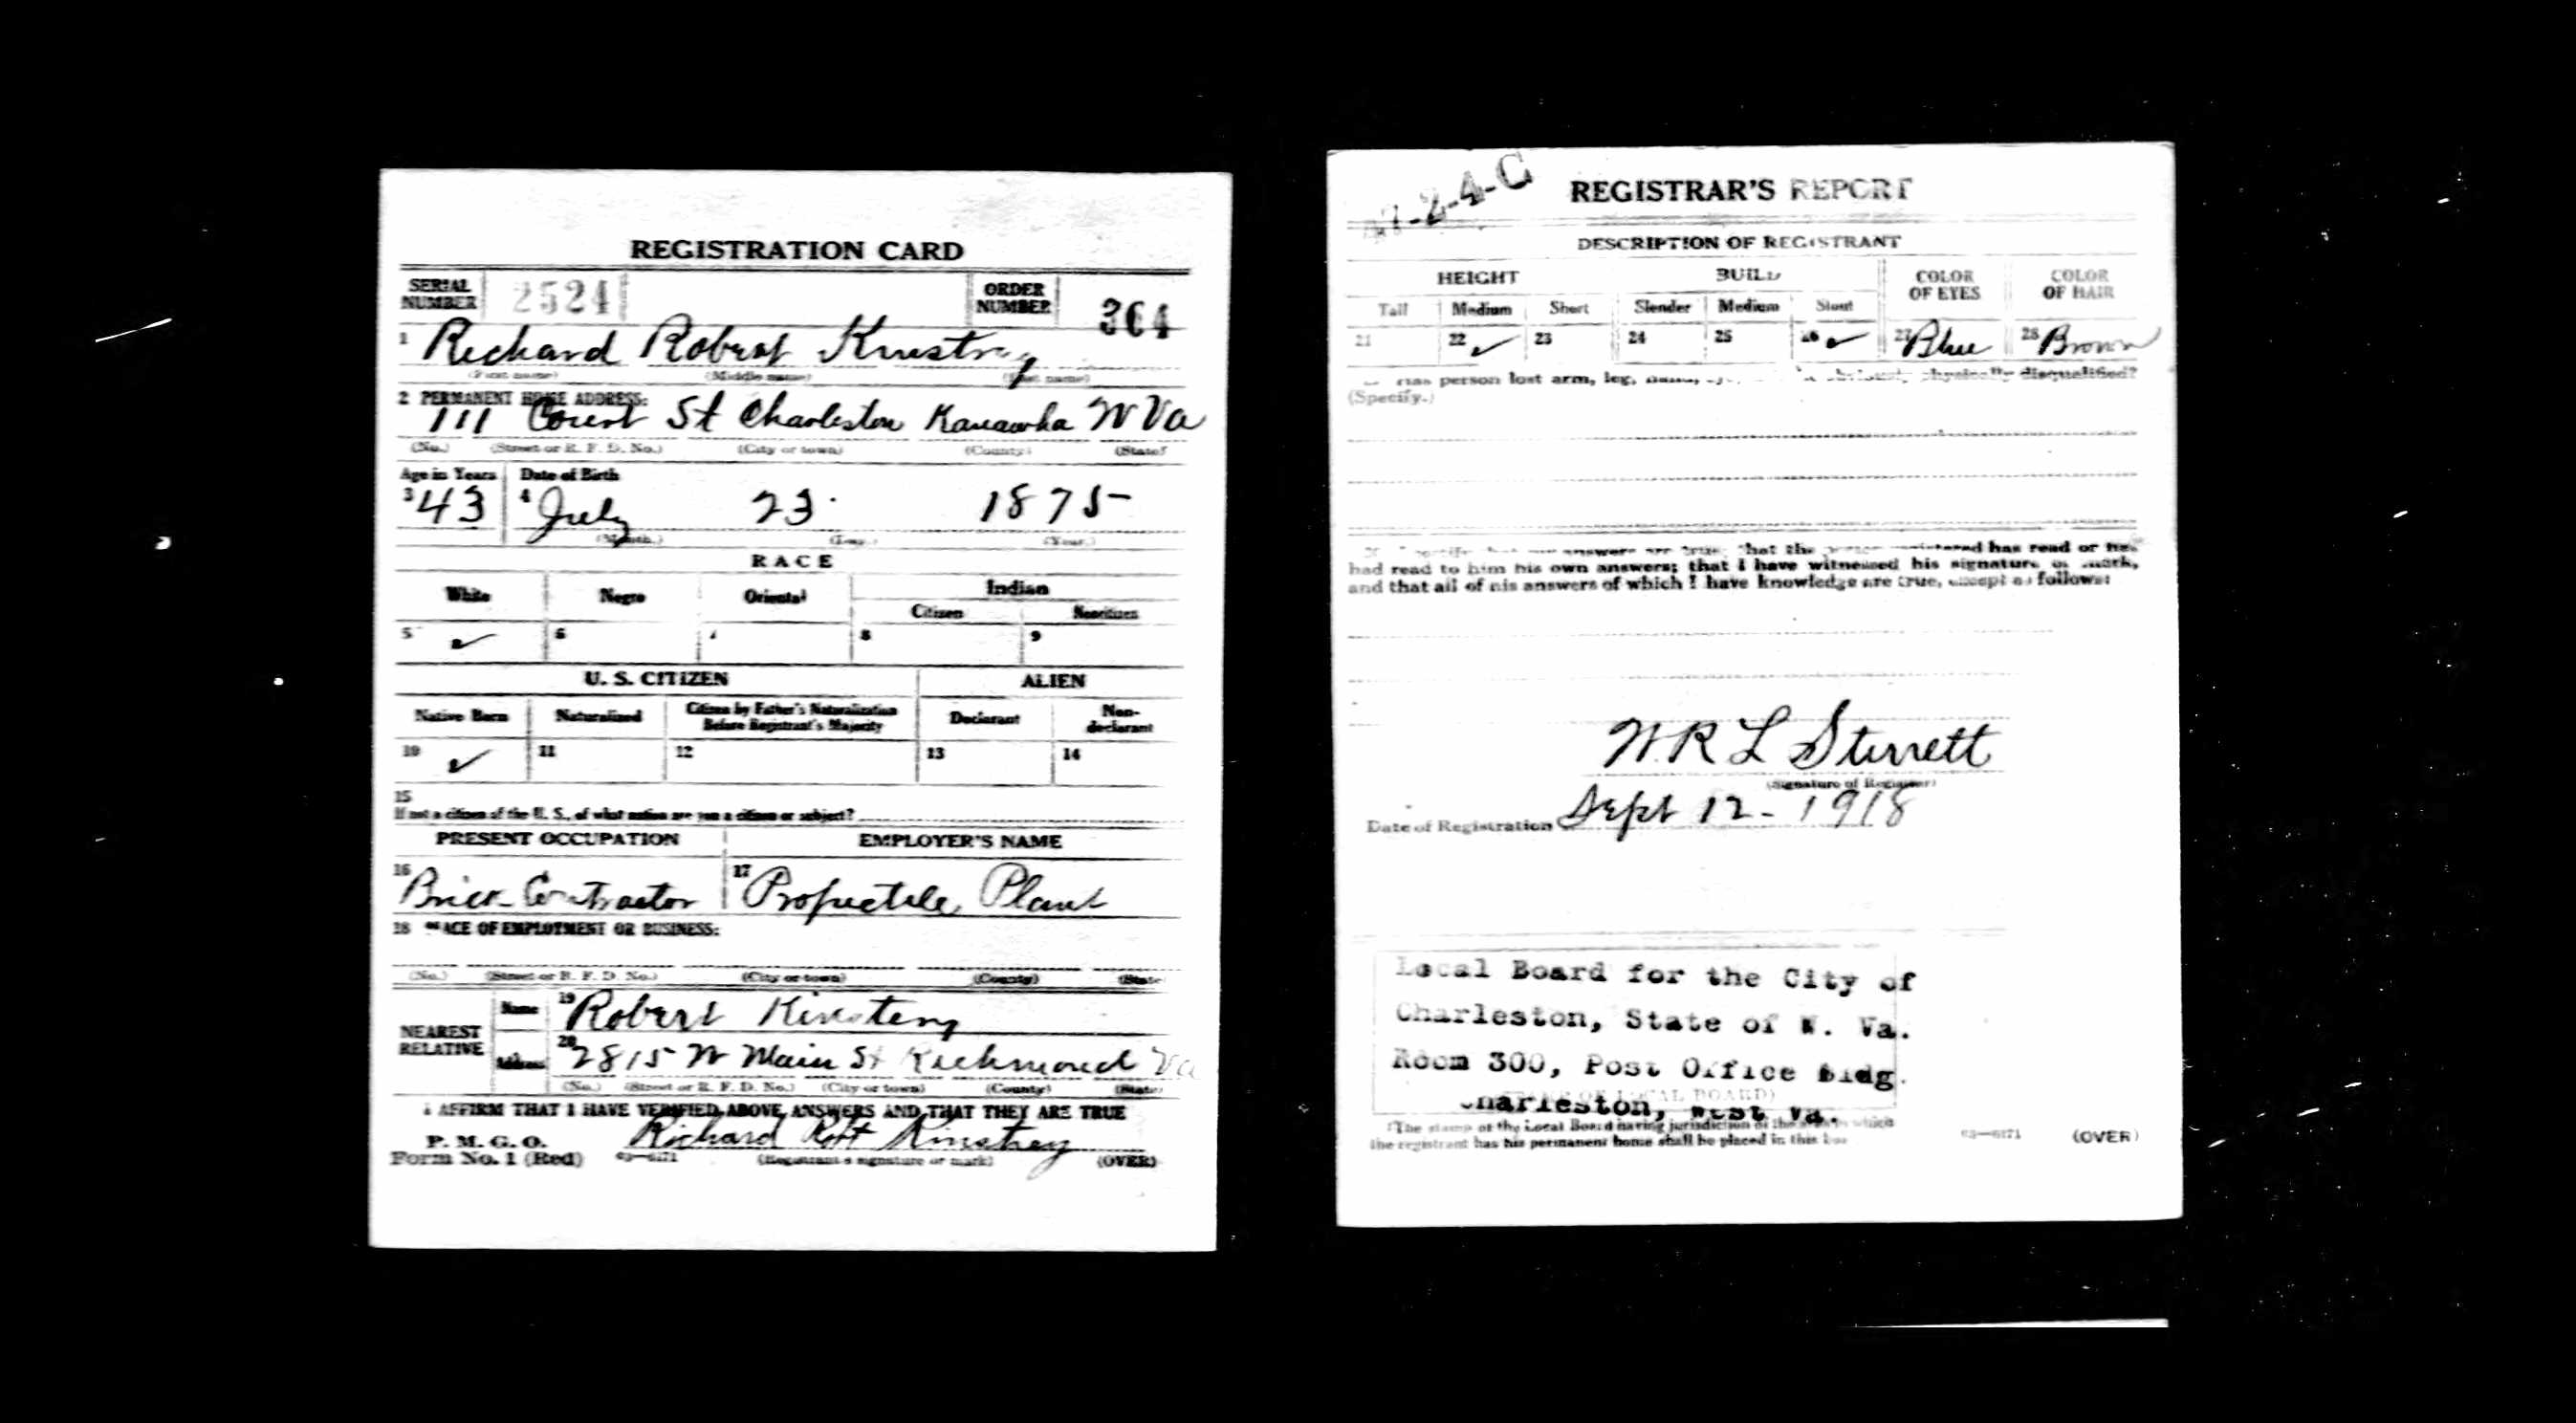 REGISTRATION CARD
SERIAL NUMBER 2524 ORDER NUMBER 364
1 Richard Robert
(First name) (Middle name) (Last name)
2 PERMANENT HOME ADDRESS:
111 Court St Charleston Kanawha W Va
(No.) (Street or R. F. D. No.) (City or town) (County) (State)
Age in Years Date of Birth
3 43 4 July 23 1875
(Month.) (Day.) (Year.)
RACE
White Negro Oriental Indian
Citizen Noncitizen
5 ✓ 6 7 8 9
U. S. CITIZEN ALIEN
Native Born Naturalized Citizen by Father's Naturalization Before Registrant's Majority Declarant Non-declarant
10 ✓ 11 12 13 14
15
If not a citizen of the U. S., of what nation are you a citizen or subject?
PRESENT OCCUPATION EMPLOYER'S NAME
16 Brick Contractor 17 Plant
18 PLACE OF EMPLOYMENT OR BUSINESS:
(No.) (Street or R. F. D. No.) (City or town) (County) (State)
NEAREST RELATIVE
Name 19 Robert
Address 20 2815 W Main St Richmond Va
(No.) (Street or R. F. D. No.) (City or town) (County) (State)
I AFFIRM THAT I HAVE VERIFIED ABOVE ANSWERS AND THAT THEY ARE TRUE
P. M. G. O.
Form No. 1 (Red) 03—6171 Richard Robt Kinstrey
(Registrant's signature or mark) (OVER)
2-4-C
REGISTRAR'S REPORT
DESCRIPTION OF REGISTRANT
HEIGHT BUILD COLOR OF EYES COLOR OF HAIR
Tall Medium Short Slender Medium Stout
21 22 ✓ 23 24 25 26 ✓ 27 Blue 28 Brown
Has person lost arm, leg, physically disqualified?
(Specify.)
answers are true; that the person registered has read or has
had read to him his own answers; that I have witnessed his signature or mark,
and that all of his answers of which I have knowledge are true, except as follows:
W. R L Sterrett
(Signature of Registrar)
Date of Registration Sept 12 - 1918
Local Board for the City of
Charleston, State of W. Va.
Room 300, Post Office Bldg.
Charleston, West Va.
(The stamp of the Local Board having jurisdiction of the area in which
the registrant has his permanent home shall be placed in this box
03—6171 (OVER)